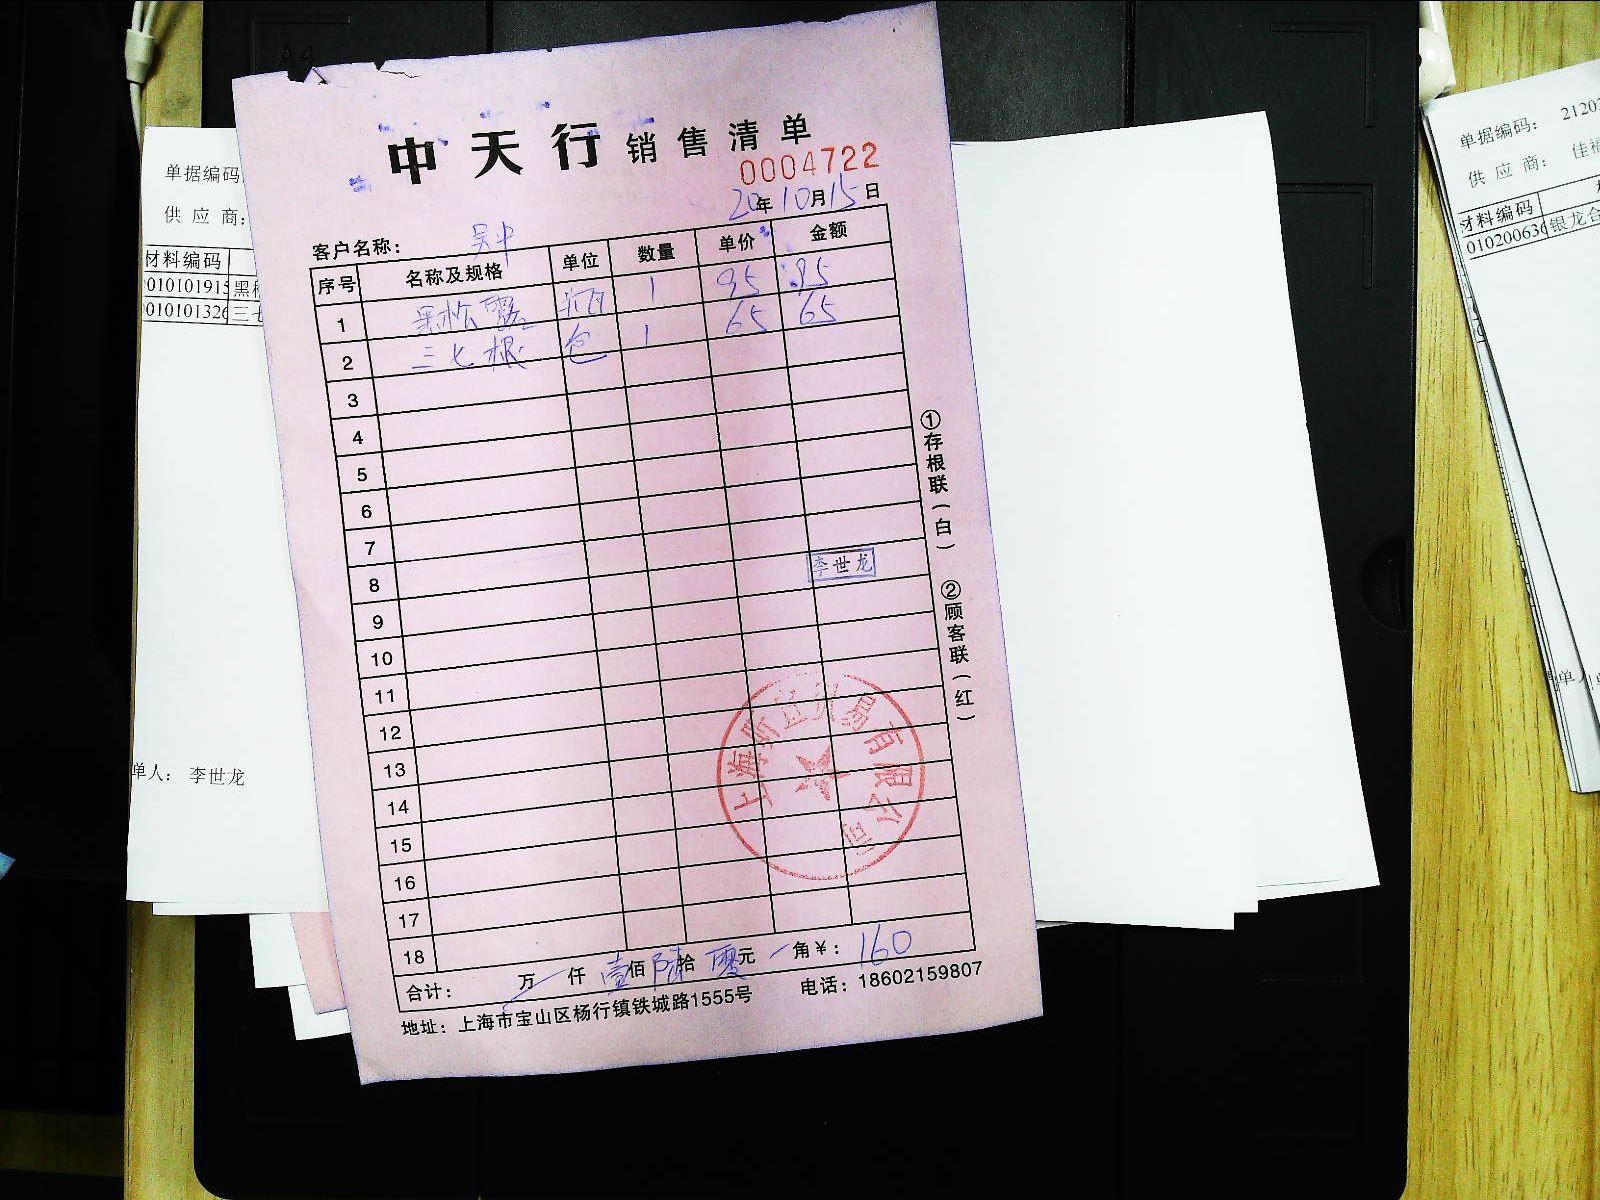 中天行销售清单
0004722
20年10月15日
客户名称： 吴中
序号 名称及规格 单位 数量 单价 金额
1 黑松露 瓶 1 95 95
2 三七根 包 1 65 65
3
4
5
6
7
8
李世龙
9
10
11
12
13
14
15
16
17
18
上海昕迪贸易有限公司
合计： 万 仟 壹佰 陆拾 零元 角￥： 160
地址：上海市宝山区杨行镇铁城路1555号 电话：18602159807
①存根联（白） ②顾客联（红）
单据编码
供应商：
材料编码
010101915 黑
010101326 三七
单人： 李世龙
单据编码： 2120
供应商： 佳福
材料编码
010200636 银龙